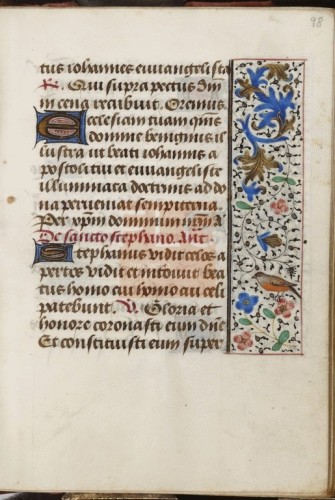 98
tus iohannes euuangelista
R. Qui supra pectus dñi
in cena recubuit. Oremus
Ecclesiam tuam qm̃s
domine benignus il
lustra ut beati iohannis a
postoli tui et euangeliste
illuminata doctrinis ad do
na perveniat sempiterna.
Per xp̃m dominum nr̃m A
De sancto stephano. Ant
Stephanus vidit celos a
pertos vidit et introivit bea
tus homo cui homo cui celi
patebunt. V. Gloria et
honore coronasti eum dñe
Et constituisti eum super